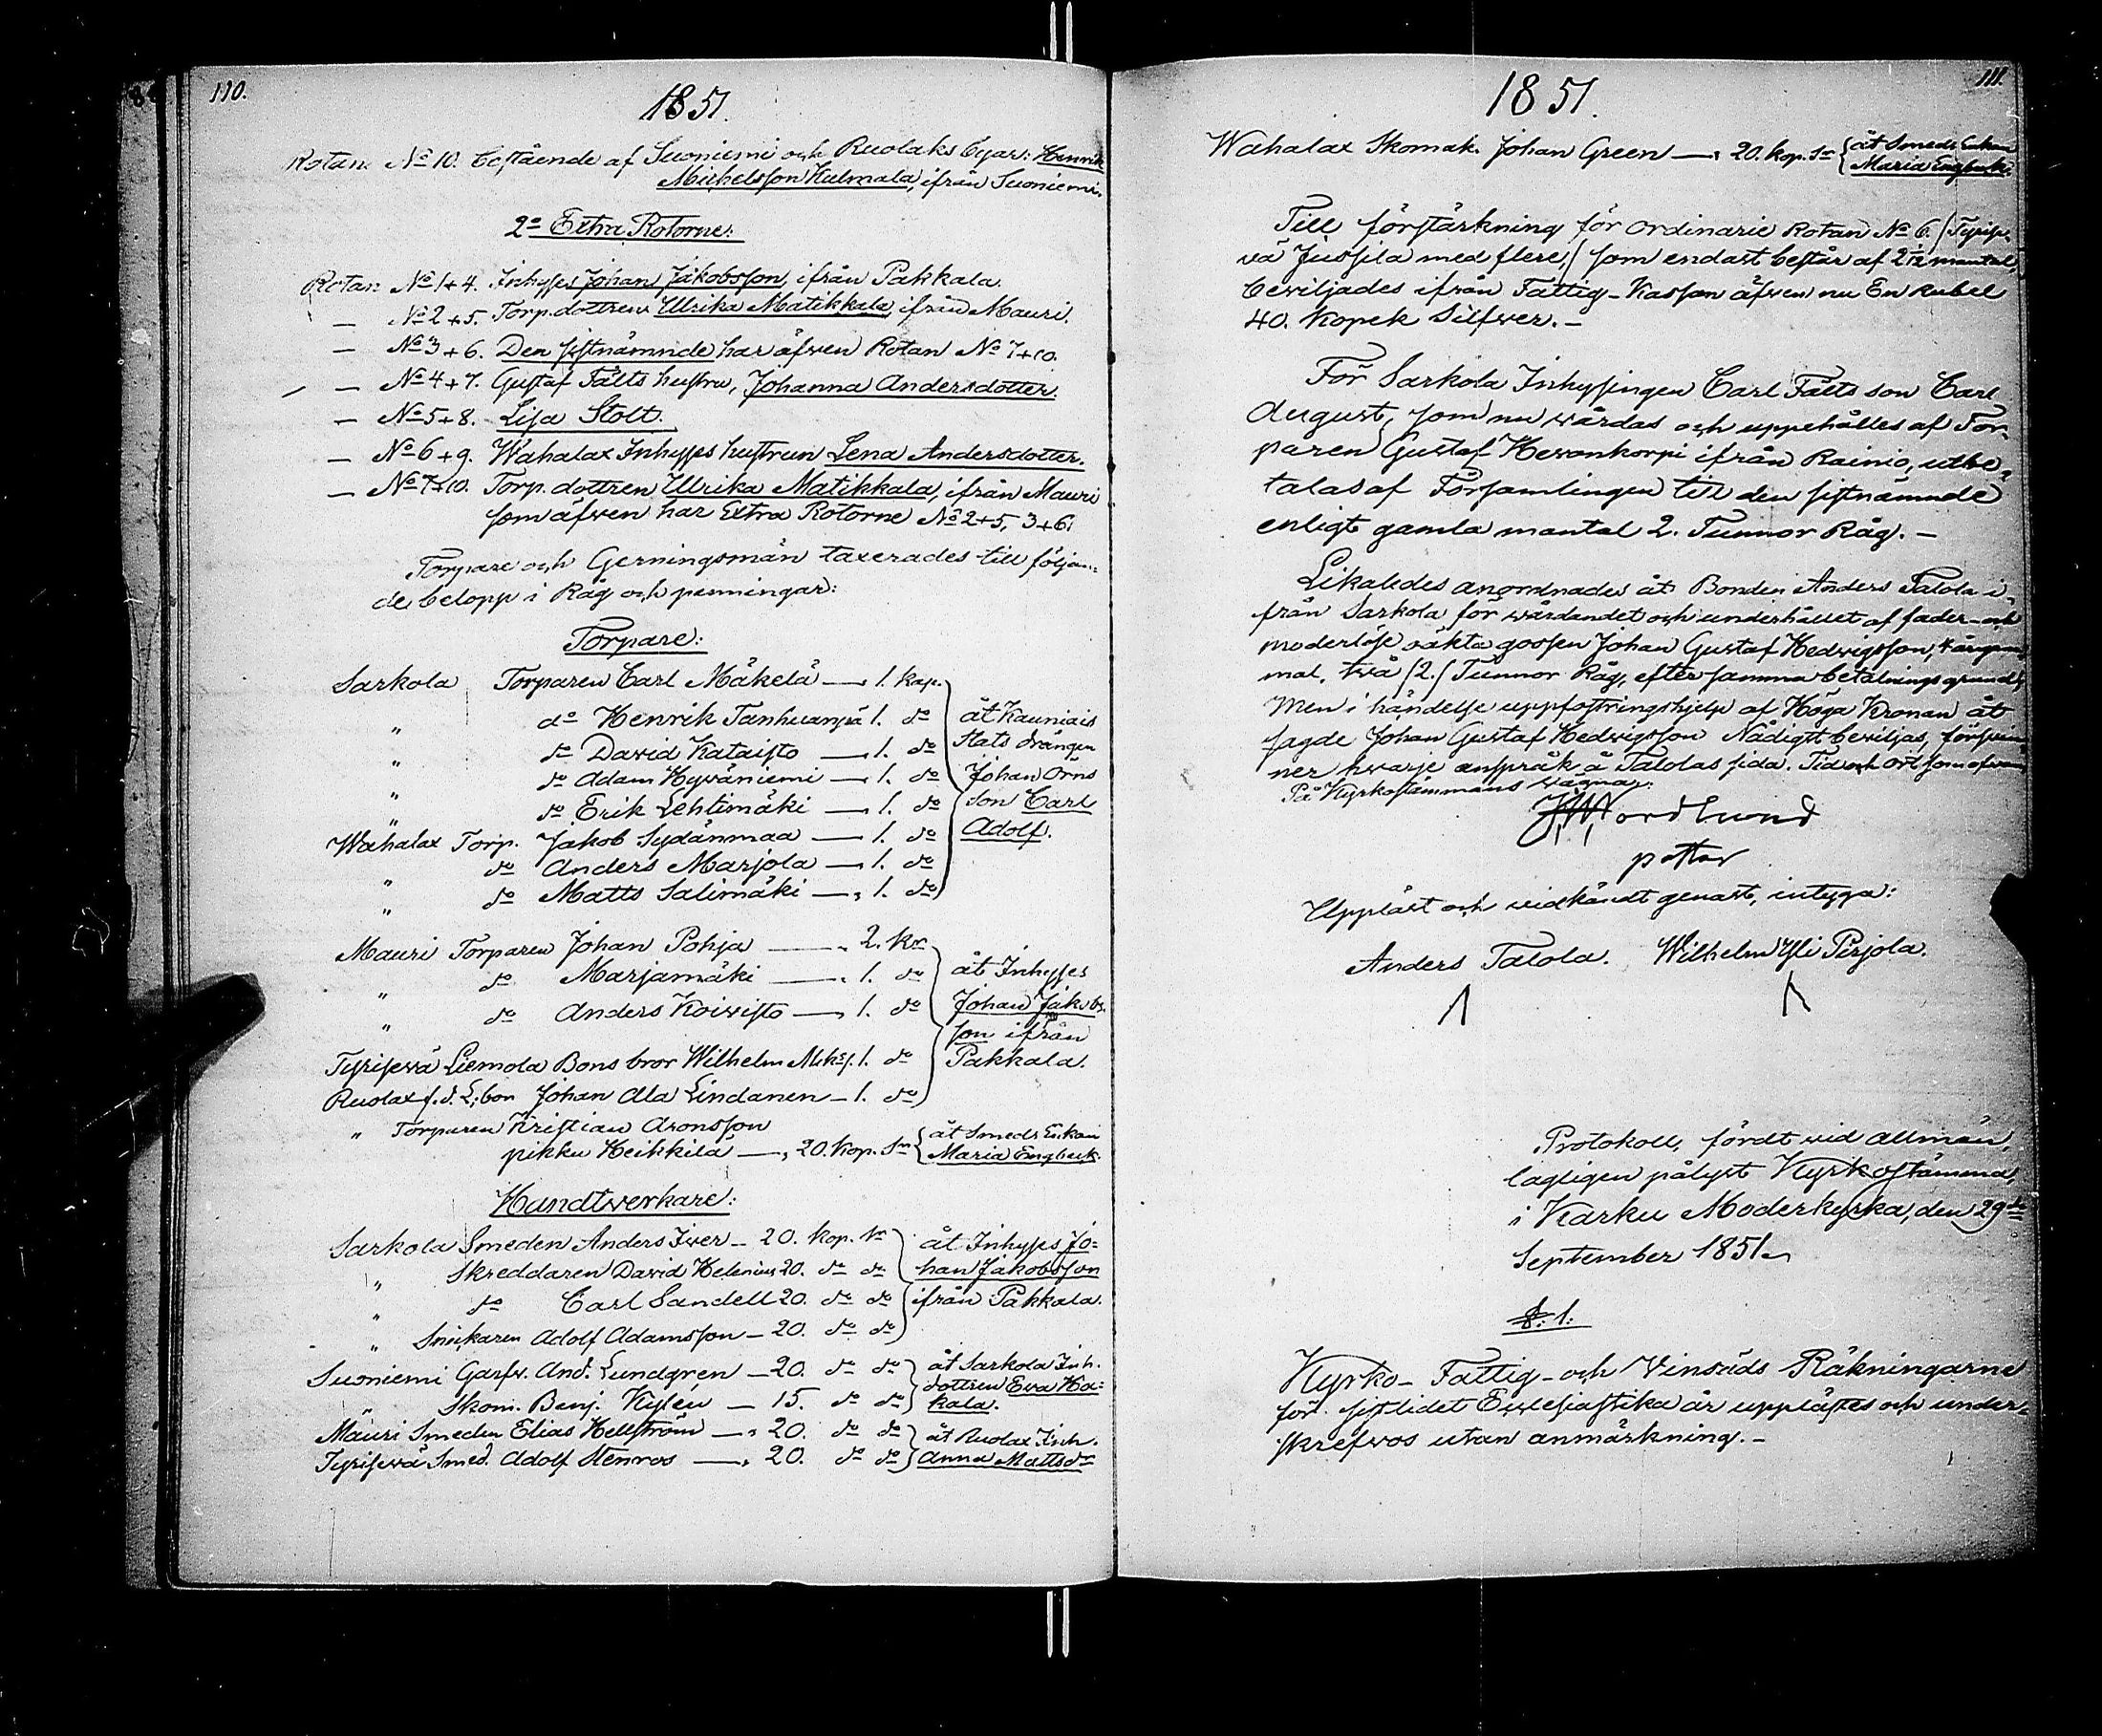 110.
1851.
Rotan No 10. bestående af Suoniemi och Ruolaks byar: Henrik
Michelsson Kulmala, ifrån Suoniemi.
2o Extra Rotorne:
Rotan No 1+4. Inhyses Johan Jakobsson, ifrån Pakkala.
— No 2+5. Torp. dottren Ulrika Matikkala, ifrån Mauri.
— No 3+6. Den sistnämnde har äfwen Rotan No 7+10.
— No 4+7. Gustaf Fälts hustru, Johanna Andersdotter.
— No 5+8. Lisa Stolt.
— No 6+9. Wahalax Inhyses hustrun Lena Andersdotter.
— No 7+10. Torp. dottren Ulrika Matikkala, ifrån Mauri
som äfwen har Extra Rotorne No 2+5, 3+6.
Torpare och Gerningsmän taxerades till följan=
de belopp i Råg och penningar:
Torpare:
Sarkola Torparen Carl Mäkelä — 1. kap.
" do Henrik Tanhuanpä 1. do åt Kauniais
" do David Kataisto — 1. do Stats drängen
" do Adam Hywäniemi — 1. do Johan Örns
" do Erik Lehtimäki — 1. do son Carl
Wahalax Torp. Jakob Sydänmaa — 1. do Adolf.
" do Anders Marjola — 1. do
" do Matts Salimäki — 1. do
Mauri Torparen Johan Pohja — 2. kr
" do Marjamäki — 1. do åt Inhyses
" do Anders Koiwisto — 1. do Johan Jakobs-
son ifrån
Tyrisewä Liemola Bons bror Wilhelm Miks. 1. do Pakkala.
Ruolax f.d. L:bon Johan Ala Lindanen — 1. do
" Torparen Kristian Aronsson
pikku Heikkilä — 20. kop. Sr åt Smeds Enkan
Maria Engberk.
Handtwerkare:
Sarkola Smeden Anders Iwer — 20. kop. Sr åt Inhyses Jo=
" Skreddaren David Helenius 20. do do han Jakobsson
" do Carl Sandell 20. do do ifrån Pakkala.
" Snickaren Adolf Adamsson — 20. do do
Suoniemi Garfw. And. Lundgren — 20. do do åt Sarkola Inh.
dottren Ewa Ha=
" Skom. Benj. Kylén — 15. do do kala.
Mauri Smeden Elias Hellström — 20. do do åt Ruolax Inh.
Tyrisewä Smed. Adolf Stenros — 20. do do Anna Mattsdr
111.
1851.
Wahalax Skomak. Johan Green — 20. kop. Sr åt Smeds Enkan
Maria Engberk.
Till förstärkning för ordinarie Rotan No 6. /Tyrise-
vä Jussila med flere,/ som endast består af 2 1/12 mantal,
beviljades ifrån Fattig-Kassan äfwen nu En Rubel
40. Kopek Silfwer.—
För Sarkola Inhysingen Carl Fälts son Carl
August, som nu wårdas och uppehålles af Tor-
paren Gustaf Hewonkorpi ifrån Rainio, utbe=
talas af Församlingen till den sistnämnde
enligt gamla mantal 2. Tunnor Råg.—
Likaledes anordnades åt Bonden Anders Talola i-
från Sarkola för wårdandet och underhållet af fader- och
moderlöse oäkta gossen Johan Gustaf Hedwigsson, 4 årgam-
mal, twå /2./ Tunnor Råg, efter samma betalningsgrund;
Men i händelse uppfostringshjelp af Höga Kronan åt
sagde Johan Gustaf Hedwigsson Nådigst beviljas, förswin-
ner hwarje anspråk å Talolas sida. Tid och ort som ofwan
På Kyrkostämmans wägnar:
Nordlund
pastor
Uppläst och widkändt genast, intyga:
Anders Talola. Wilhelm Yli Pirjola.
Protokoll, fördt wid allmän,
lagligen pålyst Kyrkostämma,
i Karku Moderkyrka, den 29de
September 1851.
§. 1.
Kyrko- Fattig- och Vinsäds Räkningarne
för sistlidet Ecclesiastika år upplästes och under=
skrefwos utan anmärkning.—